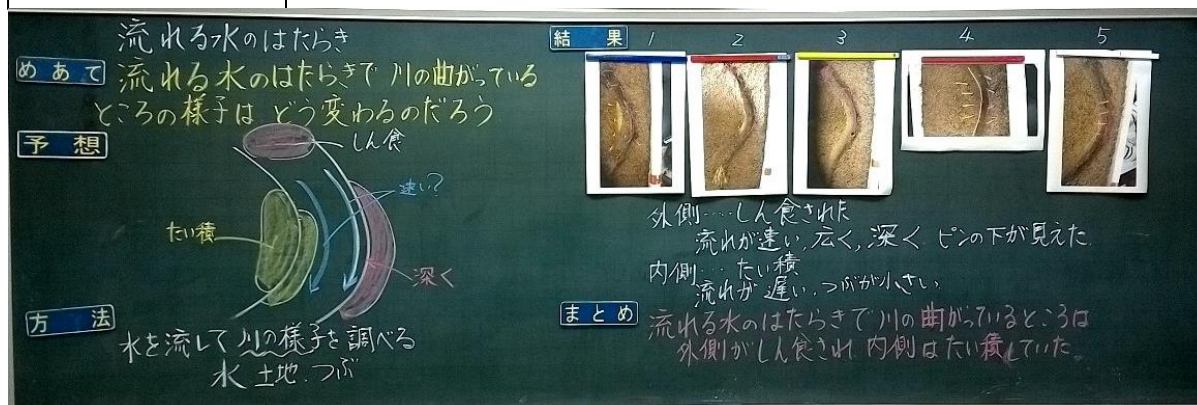 流れる水のはたらき
めあて
流れる水のはたらきで川の曲がっている
ところの様子はどう変わるのだろう
予想
しん食
速い?
たい積
深く
方法
水を流して川の様子を調べる
水 土地、つぶ
結果
1 2 3 4 5
外側‥‥しん食された
流れが速い、広く、深く ピンの下が見えた。
内側‥‥たい積
流れが遅い、つぶが小さい
まとめ
流れる水のはたらきで川の曲がっているところは
外側がしん食され、内側はたい積していた。